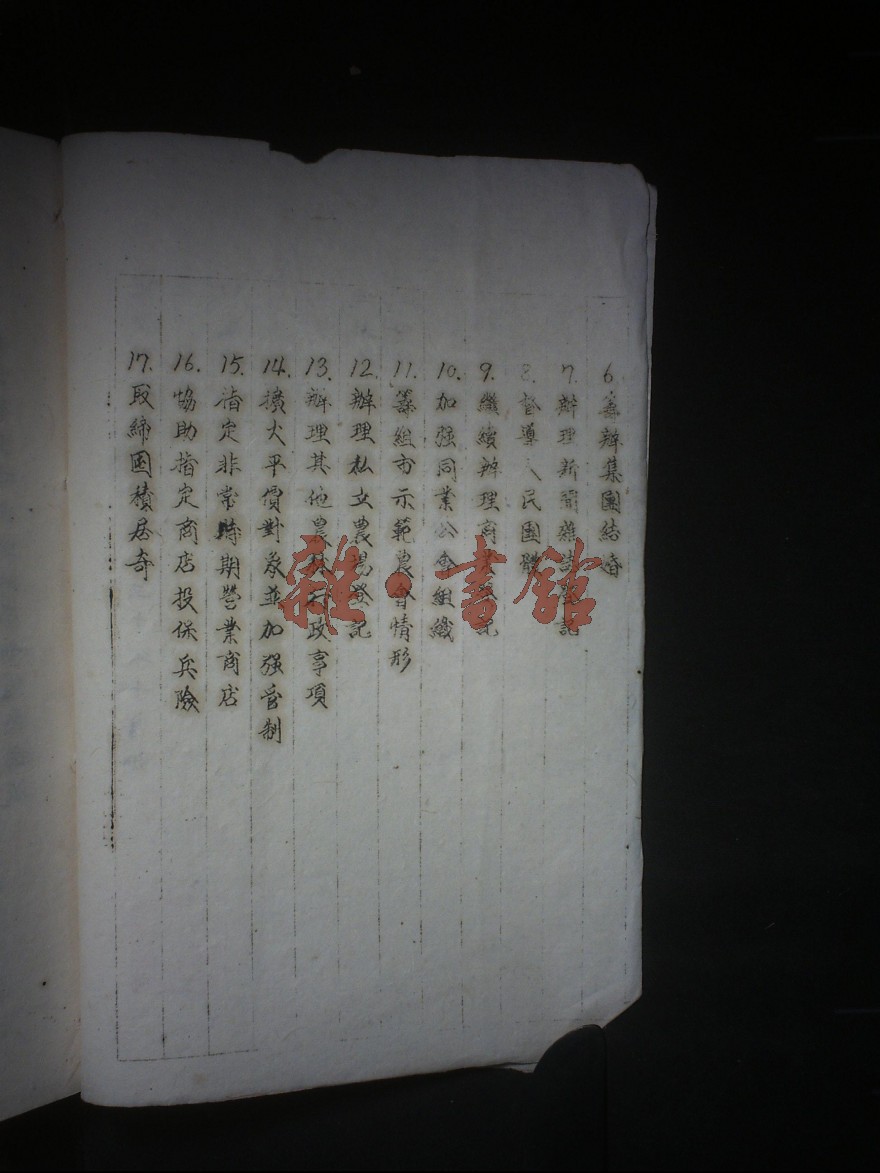 6.籌辦集團結婚
7.辦理新聞雜誌登記
8.督導人民團體
9.繼續辦理商業登記
10.加强同業公會組織
11.籌組市示範農會情形
12.辦理私立農場登記
13.辦理其他農林行政事項
14.擴大平價對象並加强管制
15.指定非常時期營業商店
16.協助指定商店投保兵險
17.取締囤積居奇
雜·書館